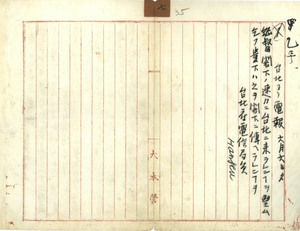 甲乙字
台北ヨリ電報 六月六日
総督閣下ノ速カニ台北ニ来ラレンコトヲ望ム
乞フ貴下ハ之ヲ閣下ニ伝ヘラレンコトヲ
台北府電信局員
Hansen
大本営